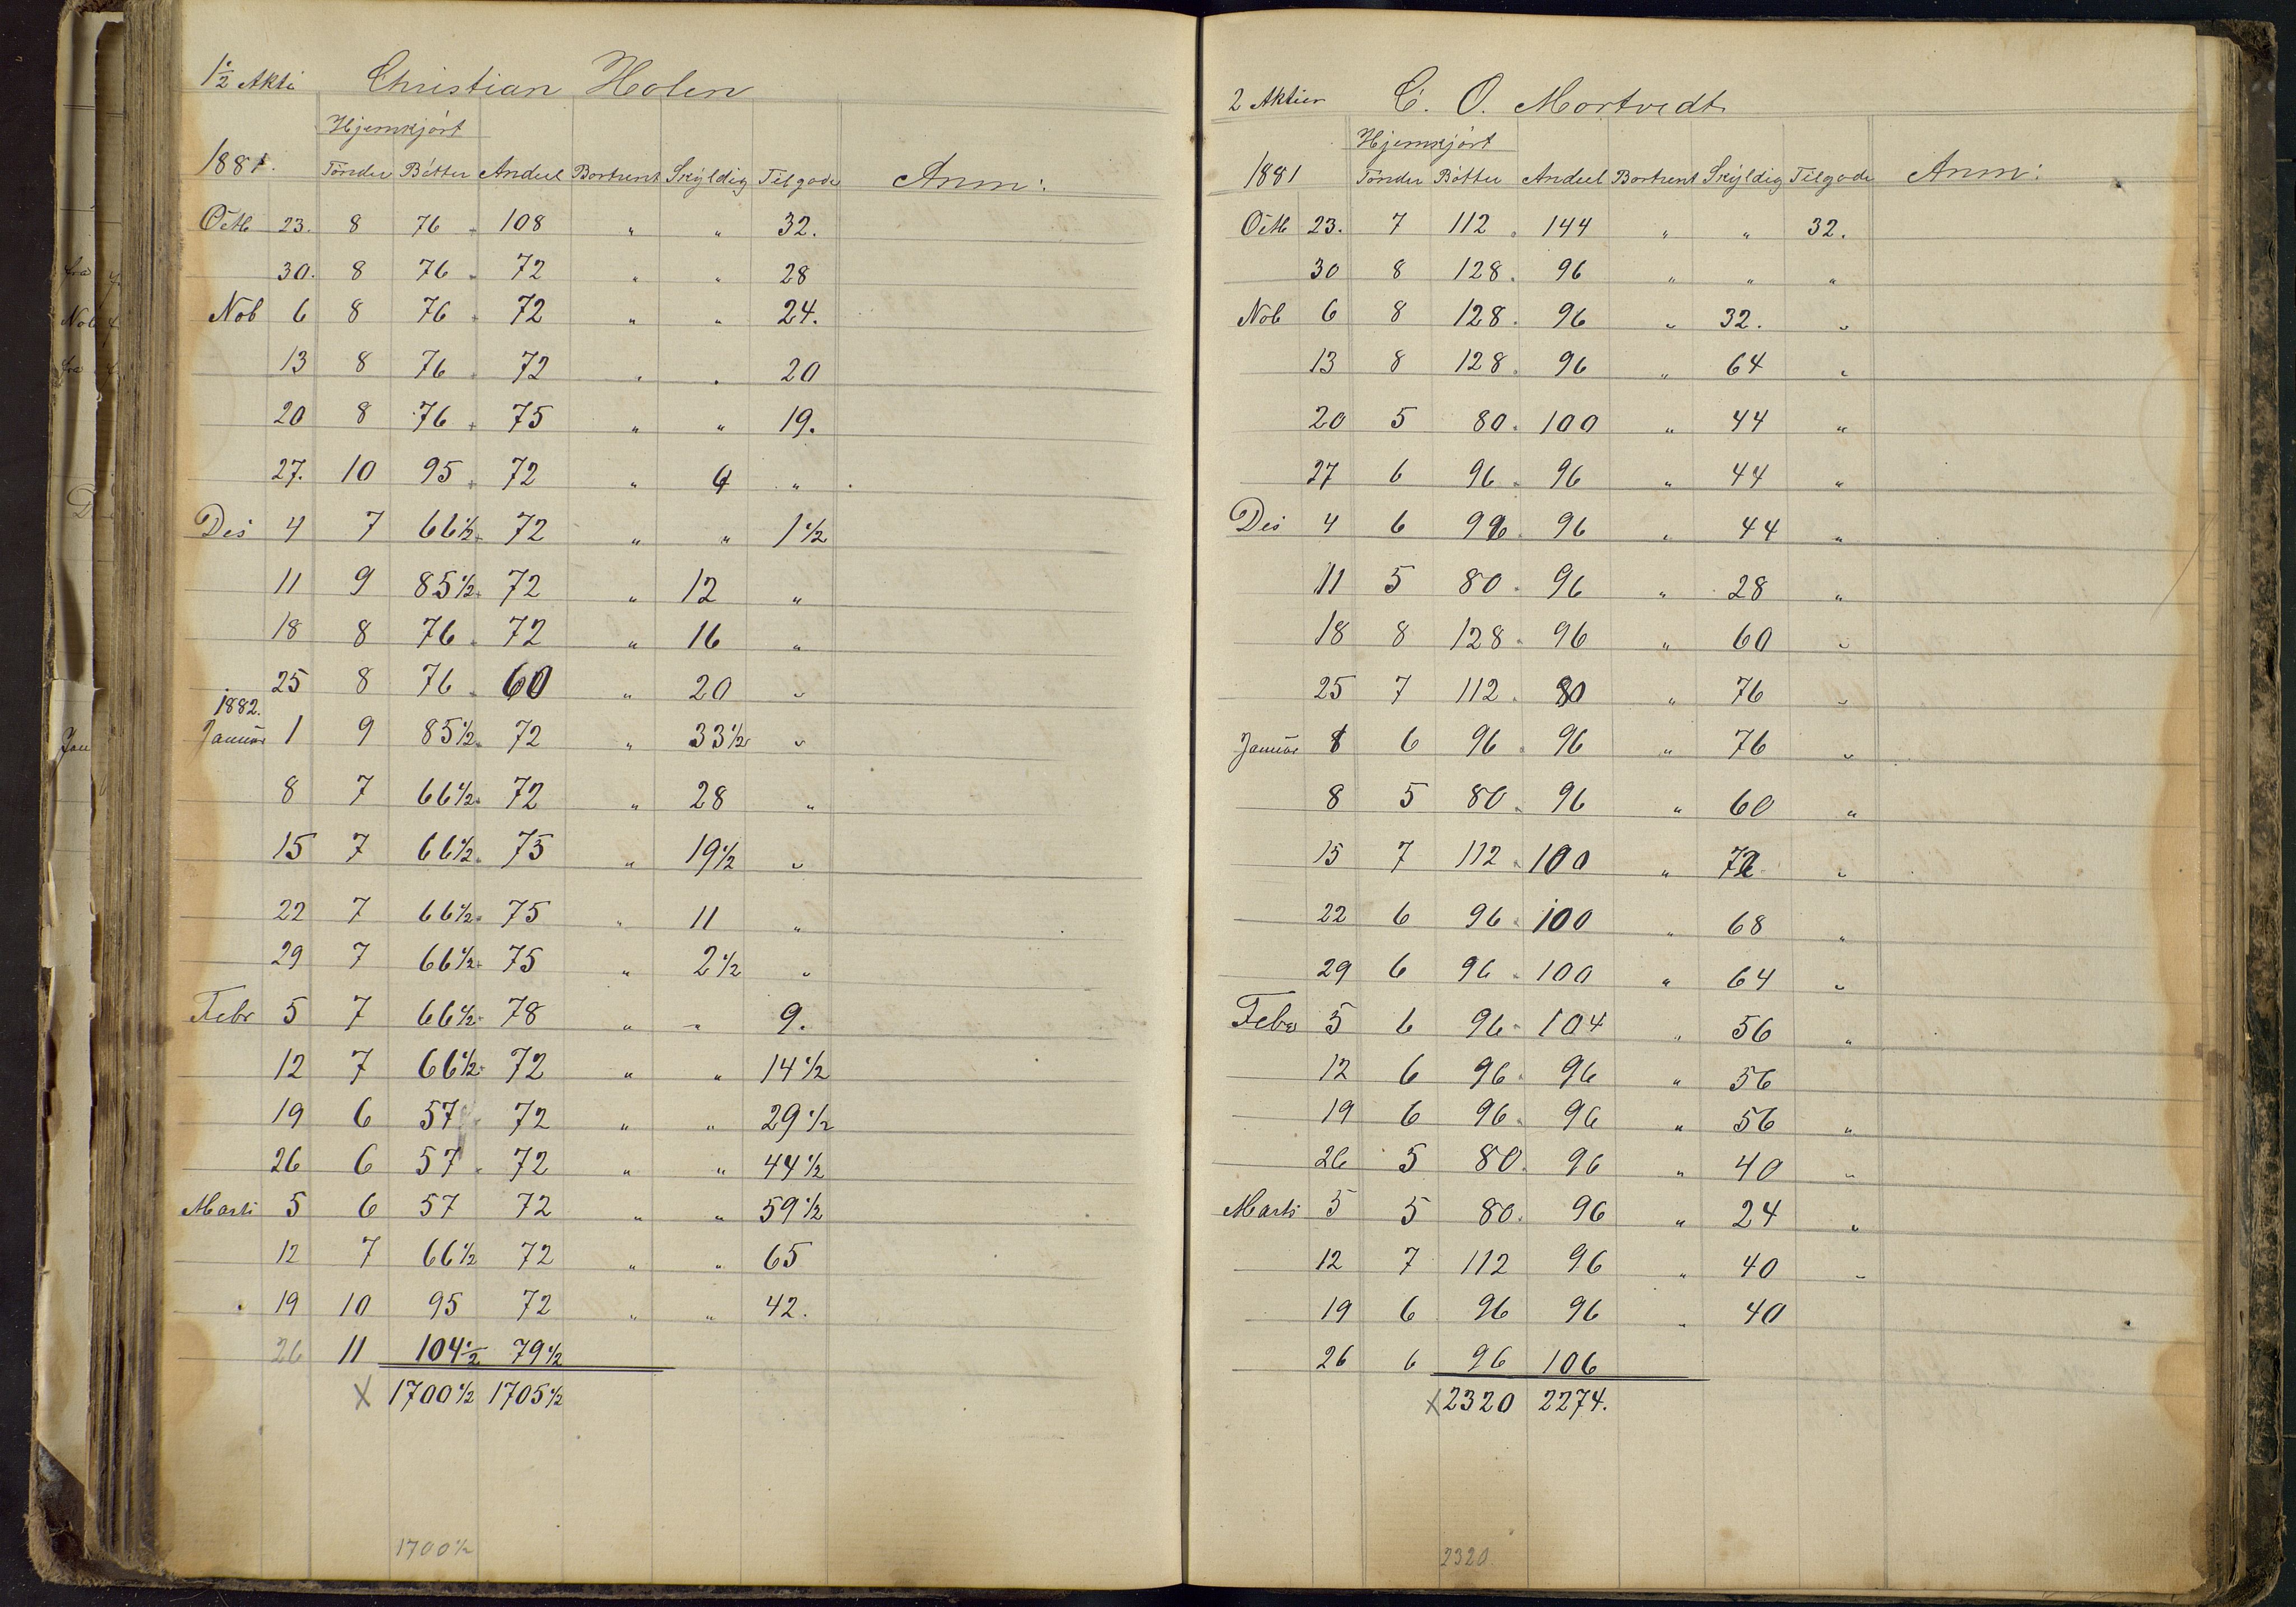 1½ Akti Christian Holen
Hjemkjört
1881. Tönder Bötter Andeel Bortrent Skÿldig Tilgode Anm:
Octb 23. 8 76 108 " " 32.
30. 8 76 72 " " 28
Nob 6 8 76 72 " " 24.
13 8 76 72 " " 20
20 8 76 75 " " 19.
27. 10 95 72 " 4 "
Des 4 7 66½ 72 " " 1½
11 9 85½ 72 " 12 "
18 8 76 72 " 16 "
25 8 76 60 " 20 "
1882.
Januar 1 9 85½ 72 " 33½ "
8 7 66½ 72 " 28 "
15 7 66½ 75 " 19½ "
22 7 66½ 75 " 11 "
29 7 66½ 75 " 2½ "
Febr 5 7 66½ 78 " " 9.
12 7 66½ 72 " " 14½
19 6 57 72 " " 29½
26 6 57 72 " " 44½
Marts 5 6 57 72 " " 59½
12 7 66½ 72 " " 65
19 10 95 72 " " 42.
26 11 104½ 79½
X 1700½ 1705½
1700½
2 Aktier C. O. Mortvedt
Hjemkjört
1881 Tönder Bötter Andeel Bortrent Skÿldig Tilgode Anm:
Octb 23. 7 112 144 " " 32.
30 8 128 96 " " "
Nob 6 8 128 96 " 32. "
13 8 128 96 " 64 "
20 5 80 100 " 44 "
27 6 96 96 " 44 "
Des 4 6 96 96 " 44 "
11 5 80 96 " 28 "
18 8 128 96 " 60 "
25 7 112 80 " 76 "
Januar 1 6 96 96 " 76 "
8 5 80 96 " 60 "
15 7 112 100 " 72 "
22 6 96 100 " 68 "
29 6 96 100 " 64 "
Febr 5 6 96 104 " 56 "
12 6 96 96 " 56
19 6 96 96 " 56 "
26 5 80 96 " 40 "
Marts 5 5 80 96 " 24 "
12 7 112 96 " 40 "
19 6 96 96 " 40
26 6 96 106
X 2320 2274.
2320